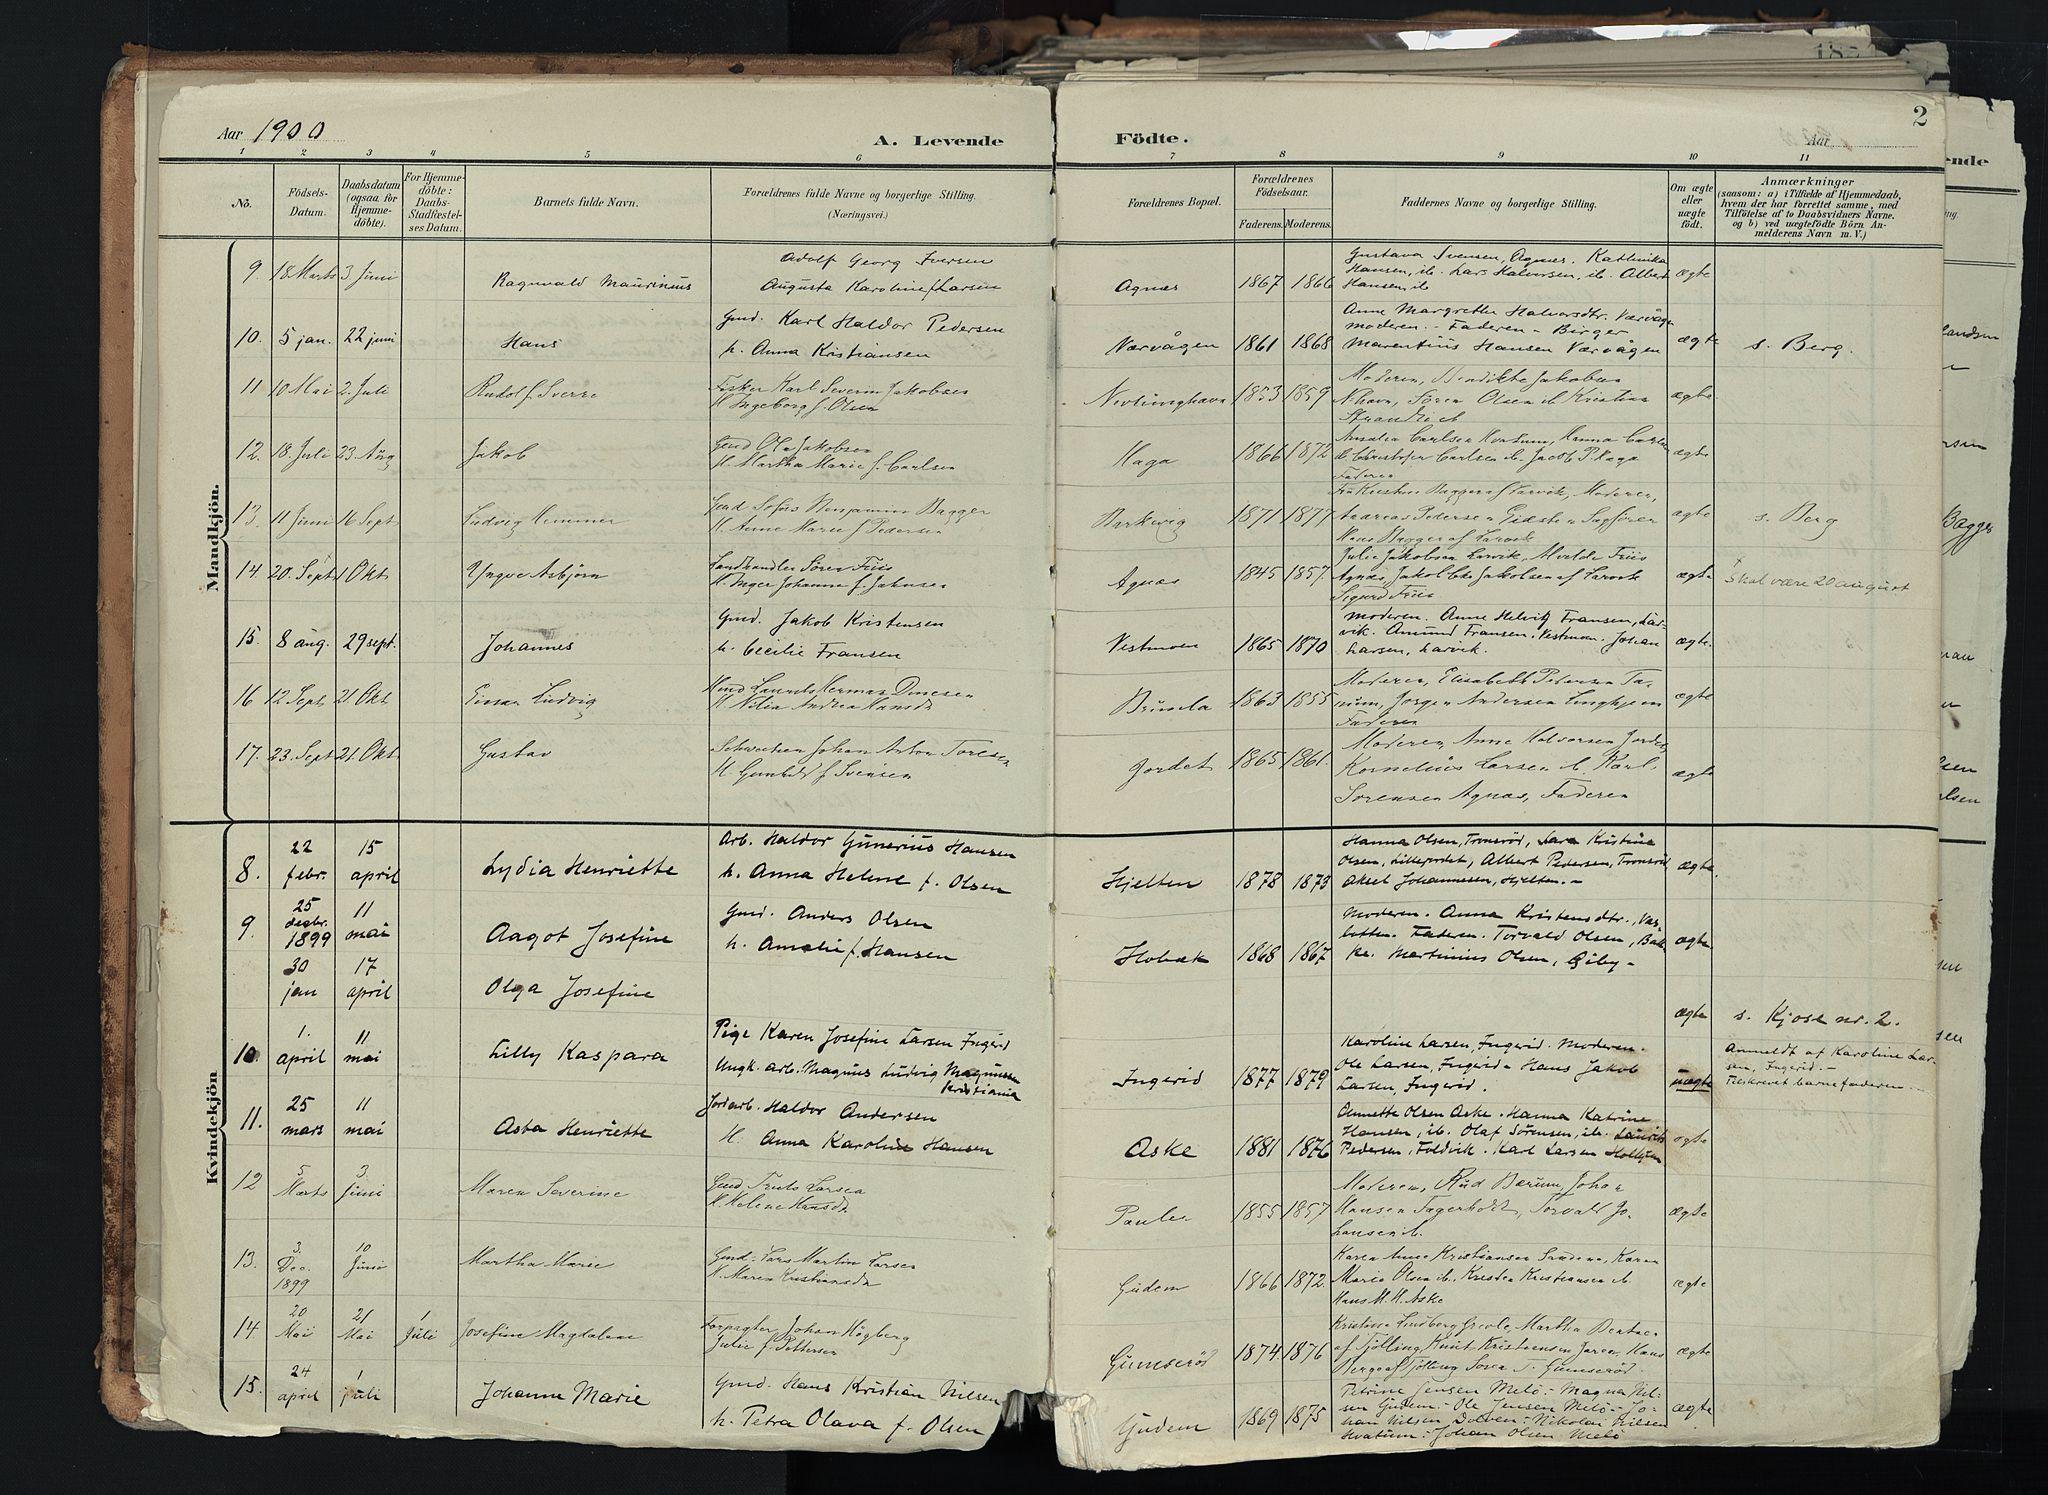 Aar 1900
A. Levende
Födte.
2
Aar
1 2 3 4 5 6 7 8 9 10 11
No.
Födsels-Datum.
Daabsdatum (ogsaa for Hjemmedöbte).
For Hjemmedöbte: Daabs-Stadfæstelses Datum.
Barnets fulde Navn.
Forældrenes fulde Navne og borgerlige Stilling. (Næringsvei.)
Forældrenes Bopæl.
Forældrenes Födselsaar.
Faderens. Moderens.
Faddernes Navne og borgerlige Stilling.
Om ægte eller uægte födt.
Anmærkninger
(saasom: a) i Tilfælde af Hjemmedaab, hvem der har forrettet samme, med Tilföielse af to Daabsvidners Navne. og b) ved uægtefödte Börn Anmelderens Navn m. V.)
Mandkjön.
9 18 Marts 3 Juni Ragnvald Maurinius
Adolf Georg Iversen
Augusta Karoline f. Larsen
Agnæs 1867 1866
Gustava Svensen, Agnæs. Kathinka
Hansen, ib. Lars Halvorsen, ib. Albert
Hansen, ib
ægte
10. 5 jan. 22 juni Hans
Gmd. Karl Haldor Pedersen
h. Anna Kristiansen
Værvågen 1861 1868
Anne Margrethe Halvorsdtr. Værvågen
moderen - Faderen - Birger
Marentius Hansen Værvågen
ægte s. Berg.
11 10 Mai 2. Juli Rudolf Sverre
Fisker Karl Severin Jakobsen
H. Ingeborg f. Olsen
Nevlunghavn 1853 1859
Moderen, Bendikte Jakobsen
Nhavn, Sören Olsen ib Kristian
Strand ib
ægte
12. 18. Juli 23 Aug Jakob
Gmd Ole Jakobsen
H. Martha Marie f. Carlsen
Haga 1866 1872
Carlsen Hvatum, Hanna Carlsen
ib Christofer Carlsen ib. Jacob P. Haga
Faderen
ægte
13. 11 Juni 16 Sept Ludvig Hemmer
Gmd Sofus Benjamin Bagger
H. Anne Marie f Pedersen
Barkevig 1871 1877
Bagger af Larvik, Moderen,
Andreas Pedersen
Hans Bagger af Larvik
ægte s. Berg
14. 20. Sept 1 Okt Yngve Asbjörn
Landhandler Sören Friis
H. Inger Johanne f. Jahnsen
Agnæs 1845 1857.
Julie Jakobsen Larvik, Friis
Agnæs, Jakobsen af Larvik
Sigurd Friis
ægte Skal være 20 august
15. 8 aug. 29 sept. Johannes
Gmd. Jakob Kristensen
h. Cecilie Fransen
Vestmoen 1865 1870
moderen. Anne Helvig Fransen, Lar-
vik. Amund Fransen. Vestmoen. Johan
Larsen, Larvik.
ægte.
16 12 Sept 21. Okt Einar Ludvig
Gmd Laurits Herman Dinesen
H Nilia Andrea Hansdr
Brunla 1863 1855
Moderen, Elisabeth Pedersen Ta-
num, Jörgen Andersen
Faderen
ægte
17. 23. Sept 21. Okt Gustav
Johan Anton Toresen
H. Gunhild f Svensen
Jordet 1865 1861.
Moderen, Anne Halvorsen Jordet
Kornelius Larsen ib. Karl
Sörensen Agnæs, Faderen
ægte
Kvindekjön
8. 22 febr. 15 april Lydia Henriette
Arb. Haldor Gunerius Hansen
h. Anna Helene f. Olsen
Hjelten 1878 1873
Hanna Olsen, Tronsröd, Lara Kristine
Olsen, Lillejordet, Albert Pedersen, Tronsröd
Aksel Johannesen, Hjelten. -
ægte.
9. 25 decbr. 1899 11 mai Aagot Josefine
Gmd. Anders Olsen
h. Amalie f. Hansen
Hobæk 1868 1867
Moderen. Anna Kristensdtr., Vas-
botten. Faderen. Torvald Olsen, Bak-
ke. Martinius Olsen, Oiby -
ægte
30 jan 17 april Olga Josefine
ægte s. Kjose nr. 2.
10. 1. april 11 mai Lilly Kaspara
Pige Karen Josefine Larsen Ingerid
Ungk. arb. Magnus Ludvig Magnussen
Kristiania
Ingerid 1877 1879
Karoline Larsen, Ingerid. Moderen.
Ole Larsen, Ingerid - Hans Jakob
Larsen, Ingerid.
uægte
Anmeldt af Karoline Lar-
sen, Ingerid. -
Tilskrevet barnefaderen. -
11. 25 mars 11 mai Asta Henriette
Jordarb. Haldor Andersen
H. Anna Karoline Hansen
Aske 1881 1876
Annette Olsen Aske. Hanna Katrine
Hansen, ib. Olaf Sörensen, ib. Laurits
Pedersen, Foldvik. Karl Larsen Holtejen
ægte
12 5 Marts 3. Juni Maren Severine
Gmd Truls Larsen
H. Helene Hansdr
Paule. 1855 1857
Moderen, Rud Bærum, Johan
Hansen Fagerholt, Torvald Jo-
hansen ib.
ægte
13. 3. Dec. 1899 10 Juni Martha Marie
Gmd. Lars Martin Larsen
H. Maren Kristiansdr
Gudem 1866 1872.
Karen Anne Kristiansen Sandene, Karen
Marie Olsen ib. Kristen Kristiansen ib
Hans M. H. Aske
ægte
14. 20 Mai 21 Mai 1 Juli Josefine Magdalene
Forpagter Johan Högberg
Julie f. Pettersen
Gumseröd 1874. 1876
Kristine Lindberg Martha
af Tjölling Knut Kristensen Hans
Berge af Tjölling Gumseröd
ægte
15. 24 april 1 juli Johanne Marie
Gmd. Hans Kristian Nilsen
h. Petra Olava f. Olsen
Gudem 1869 1875
Petrine Jensen Melö. - Magna Nil-
sen Gudem. - Ole Jensen Melö. - Jo-
han Nilsen, Dolven. - Nikolai Nilsen
Hvatum. - Johan Olsen Melö
ægte